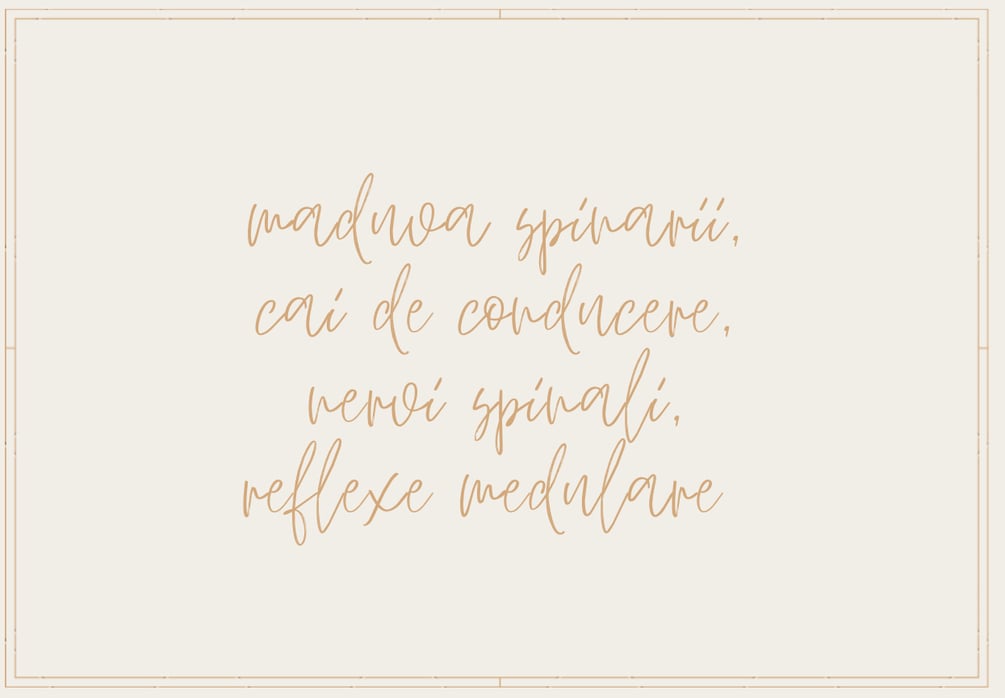 maduva spinarii,
cai de conducere,
nervi spinali,
reflexe medulare